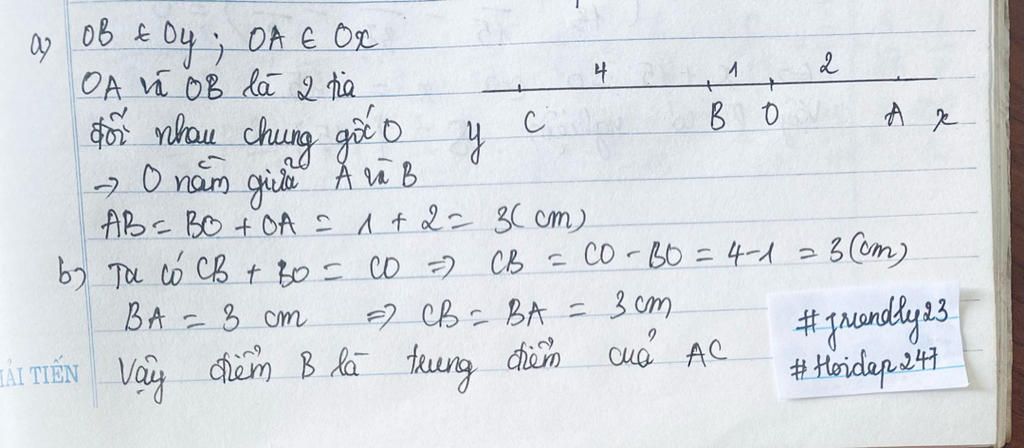 a) OB ∈ Oy ; OA ∈ Ox
OA và OB là 2 tia
đối nhau chung gốc O
→ O nằm giữa A và B
4 1 2
y C B O A x
AB = BO + OA = 1 + 2 = 3 (cm)
b) Ta có CB + BO = CO => CB = CO - BO = 4-1 = 3 (cm)
BA = 3 cm => CB = BA = 3 cm
Vậy điểm B là trung điểm của AC
#friendly23
#Hoidap247
ẢI TIẾN